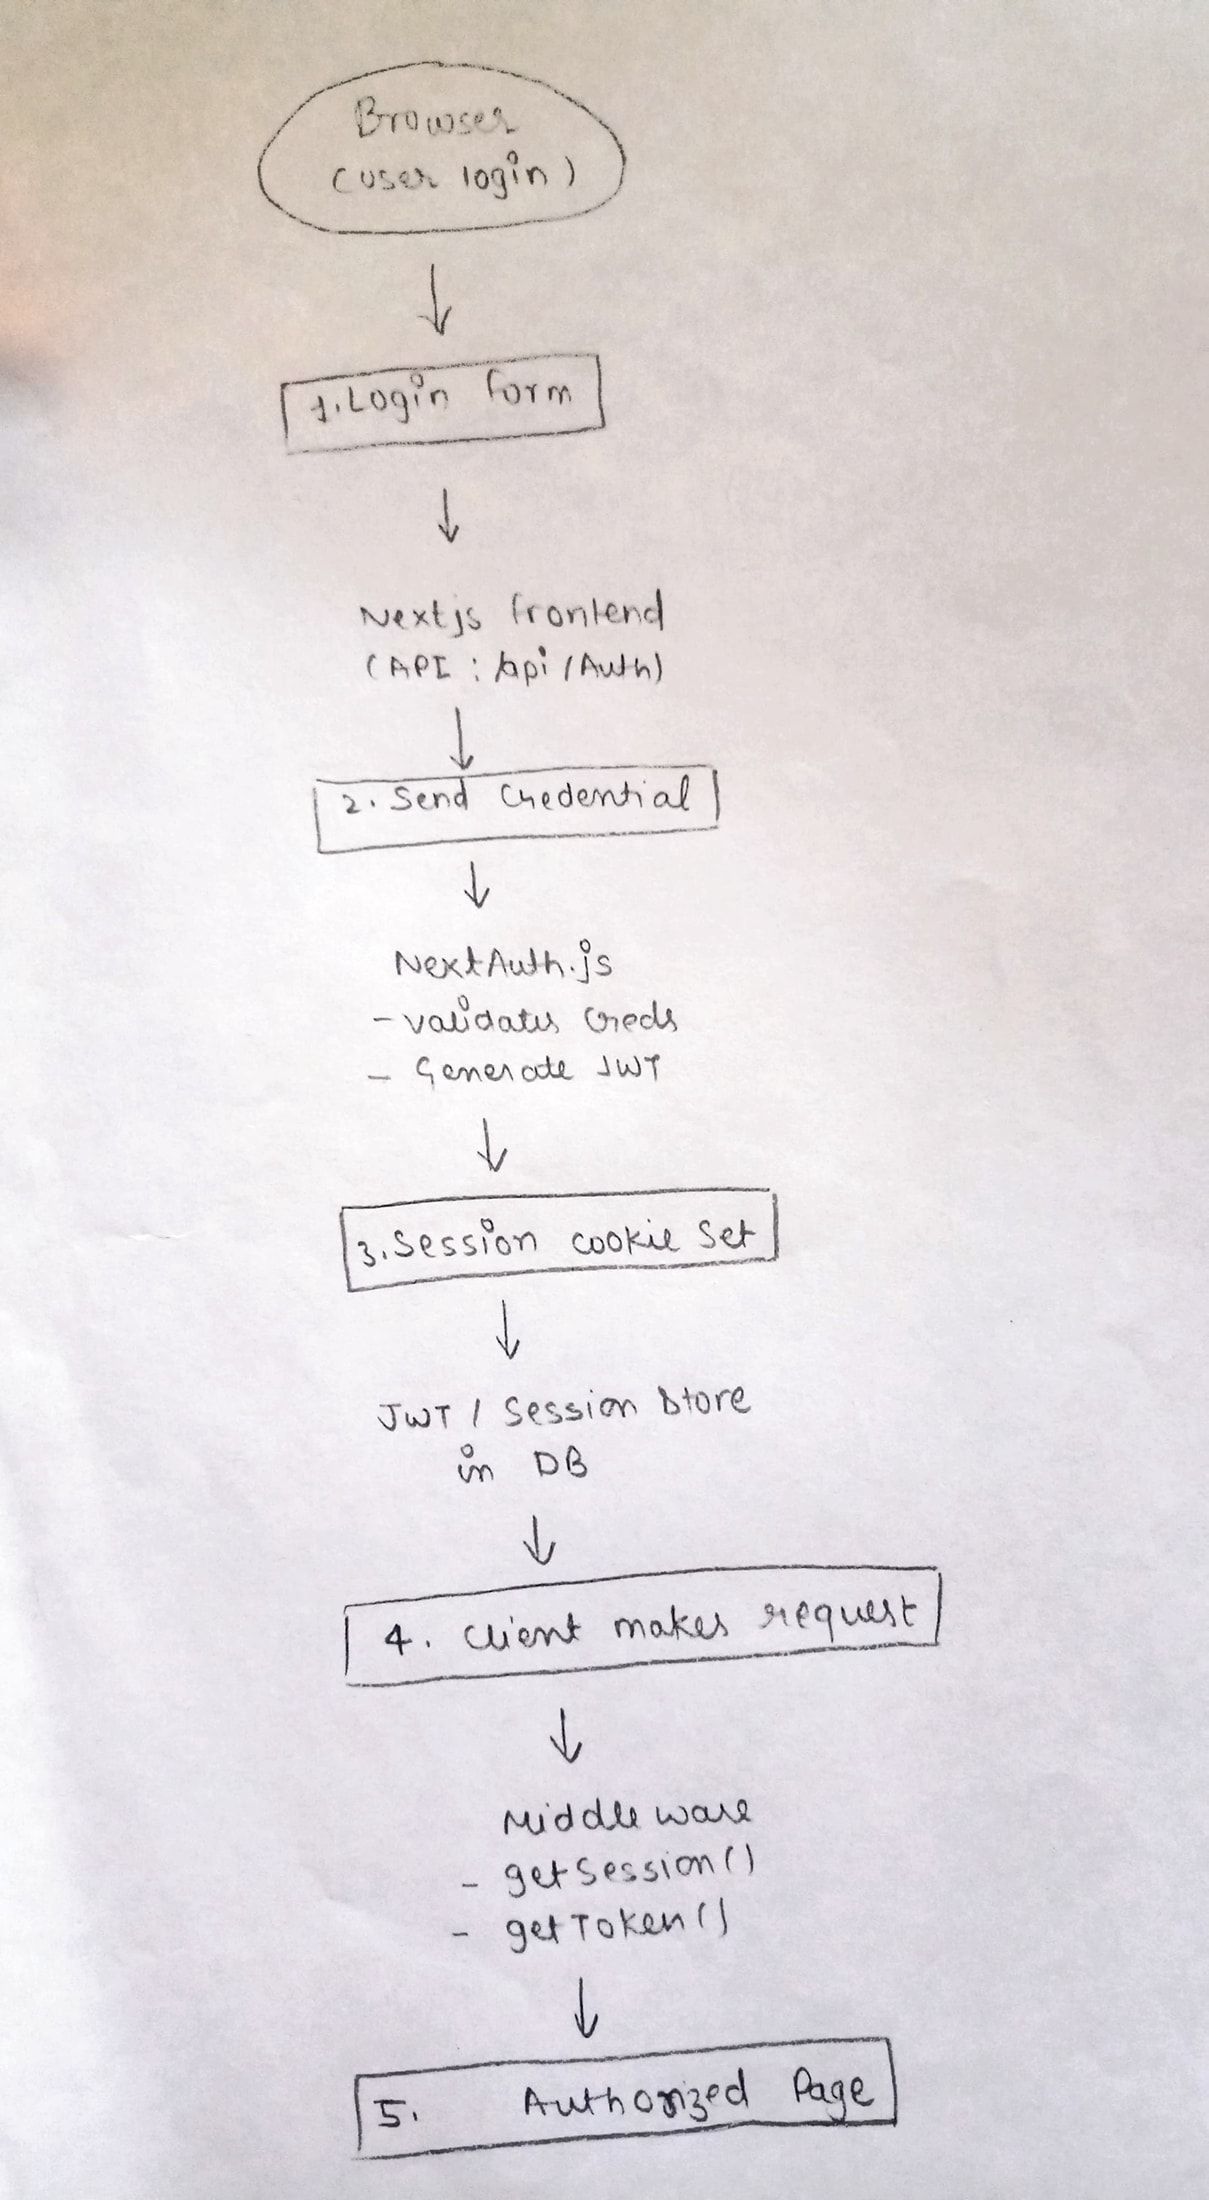 Browser
(user login)
1. Login form
Nextjs frontend
(API : /api/Auth)
2. Send Credential
NextAuth.js
- validates Creds
- Generate JWT
3. Session cookie Set
JWT / Session Store
in DB
4. Client makes request
Middleware
- getSession()
- getToken()
5. Authorized Page